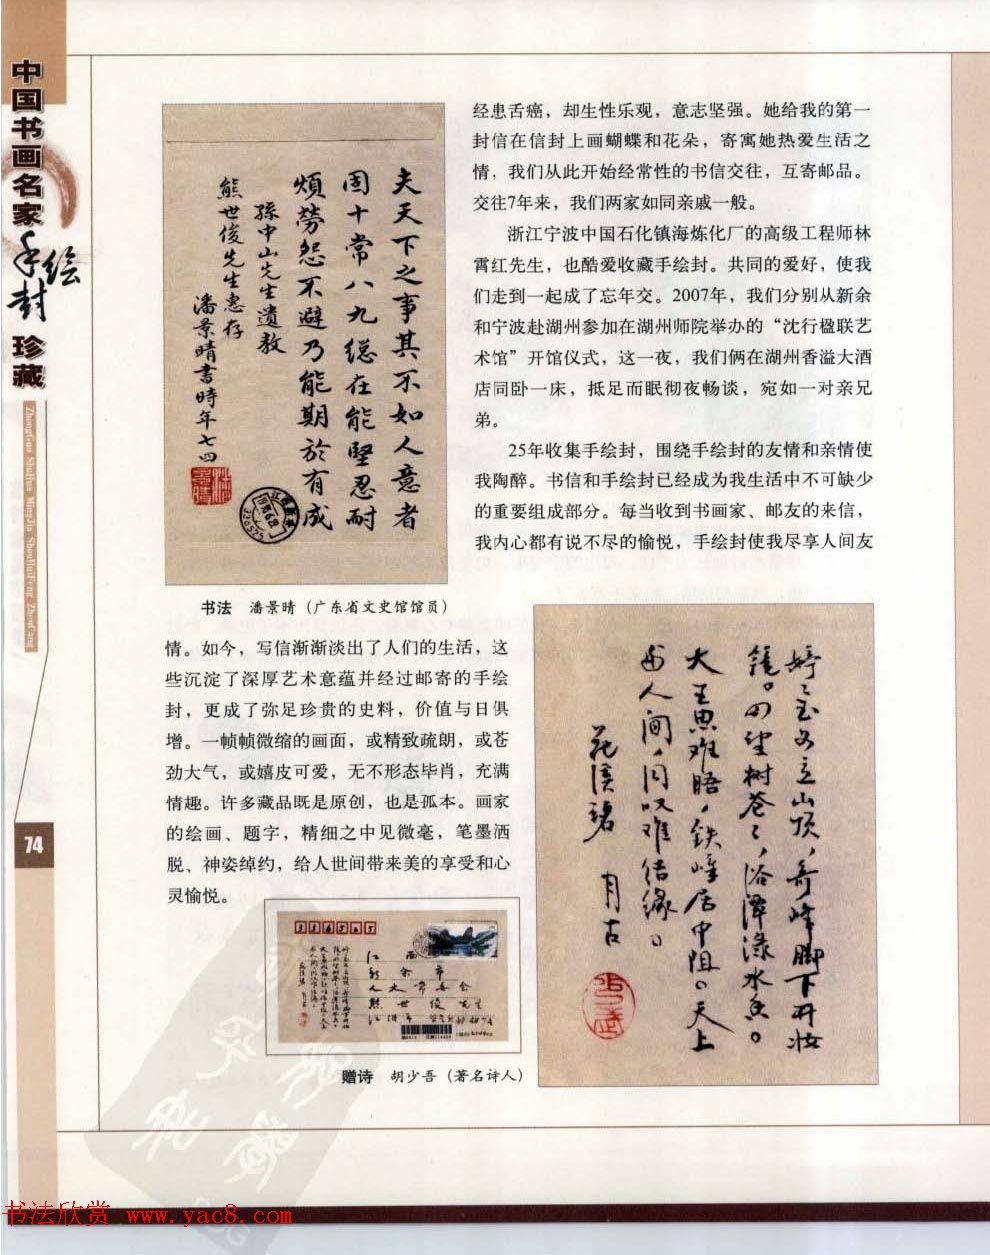 中国书画名家手绘封珍藏
ZhongGuo ShuHua MingJia ShouHuiFeng ZhenCang
74
夫天下之事其不如人意者
固十常八九总在能坚忍耐
烦劳怨不避乃能期於有成
孙中山先生遗教
熊世俊先生惠存
潘景晴書時年七四
书法 潘景晴（广东省文史馆馆员）
经患舌癌，却生性乐观，意志坚强。她给我的第一
封信在信封上画蝴蝶和花朵，寄寓她热爱生活之
情，我们从此开始经常性的书信交往，互寄邮品。
交往7年来，我们两家如同亲戚一般。
浙江宁波中国石化镇海炼化厂的高级工程师林
霄红先生，也酷爱收藏手绘封。共同的爱好，使我
们走到一起成了忘年交。2007年，我们分别从新余
和宁波赴湖州参加在湖州师院举办的“沈行楹联艺
术馆”开馆仪式，这一夜，我们俩在湖州香溢大酒
店同卧一床，抵足而眠彻夜畅谈，宛如一对亲兄
弟。
25年收集手绘封，围绕手绘封的友情和亲情使
我陶醉。书信和手绘封已经成为我生活中不可缺少
的重要组成部分。每当收到书画家、邮友的来信，
我内心都有说不尽的愉悦，手绘封使我尽享人间友
情。如今，写信渐渐淡出了人们的生活，这
些沉淀了深厚艺术意蕴并经过邮寄的手绘
封，更成了弥足珍贵的史料，价值与日俱
增。一帧帧微缩的画面，或精致疏朗，或苍
劲大气，或嬉皮可爱，无不形态毕肖，充满
情趣。许多藏品既是原创，也是孤本。画家
的绘画、题字，精细之中见微毫，笔墨洒
脱、神姿绰约，给人世间带来美的享受和心
灵愉悦。
婷婷玉女立山顶，奇峰脚下开妆
镜。四望树苍苍，浴潭渌水香。
大王思难晤，铁嶂居中阻。天上
与人间，同叹难结缘。
江西
新余市
人大常委会
熊世俊先生
赠诗 胡少吾（著名诗人）
书法欣赏 www.yac8.com